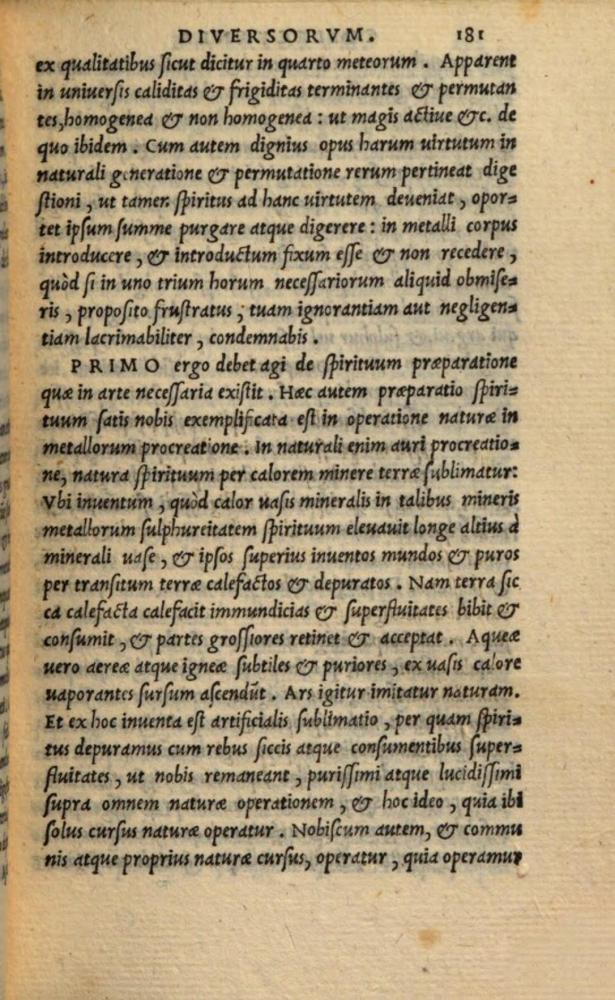 DIVERSORVM. 181
ex qualitatibus sicut dicitur in quarto meteorum . Apparent
in uniuersis caliditas & frigiditas terminantes & permutan
tes, homogenea & non homogenea : ut magis actiue &c. de
quo ibidem . Cum autem dignius opus harum uirtutum in
naturali generatione & permutatione rerum pertineat dige
stioni , ut tamen spiritus ad hanc uirtutem deueniat , opor=
tet ipsum summe purgare atque digerere : in metalli corpus
introducere , & introductum fixum esse & non recedere ,
quòd si in uno trium horum necessariorum aliquid obmise=
ris , proposito frustratus , tuam ignorantiam aut negligen=
tiam lacrimabiliter , condemnabis .
PRIMO ergo debet agi de spirituum præparatione
quæ in arte necessaria existit . Hæc autem præparatio spiri=
tuum satis nobis exemplificata est in operatione naturæ in
metallorum procreatione . In naturali enim auri procreatio=
ne, natura spirituum per calorem minere terræ sublimatur:
Vbi inuentum , quòd calor uasis mineralis in talibus mineris
metallorum sulphureitatem spirituum eleuauit longe altius à
minerali uase , & ipsos superius inuentos mundos & puros
per transitum terræ calefactos & depuratos . Nam terra sic
ca calefacta calefacit immundicias & superfluitates bibit &
consumit , & partes grossiores retinet & acceptat . Aqueæ
uero aereæ atque igneæ subtiles & puriores , ex uasis calore
uaporantes sursum ascendūt . Ars igitur imitatur naturam.
Et ex hoc inuenta est artificialis sublimatio , per quam spiri=
tus depuramus cum rebus siccis atque consumentibus super=
fluitates , ut nobis remaneant , purissimi atque lucidissimi
supra omnem naturæ operationem , & hoc ideo , quia ibi
solus cursus naturæ operatur . Nobiscum autem, & commu
nis atque proprius naturæ cursus, operatur , quia operamur